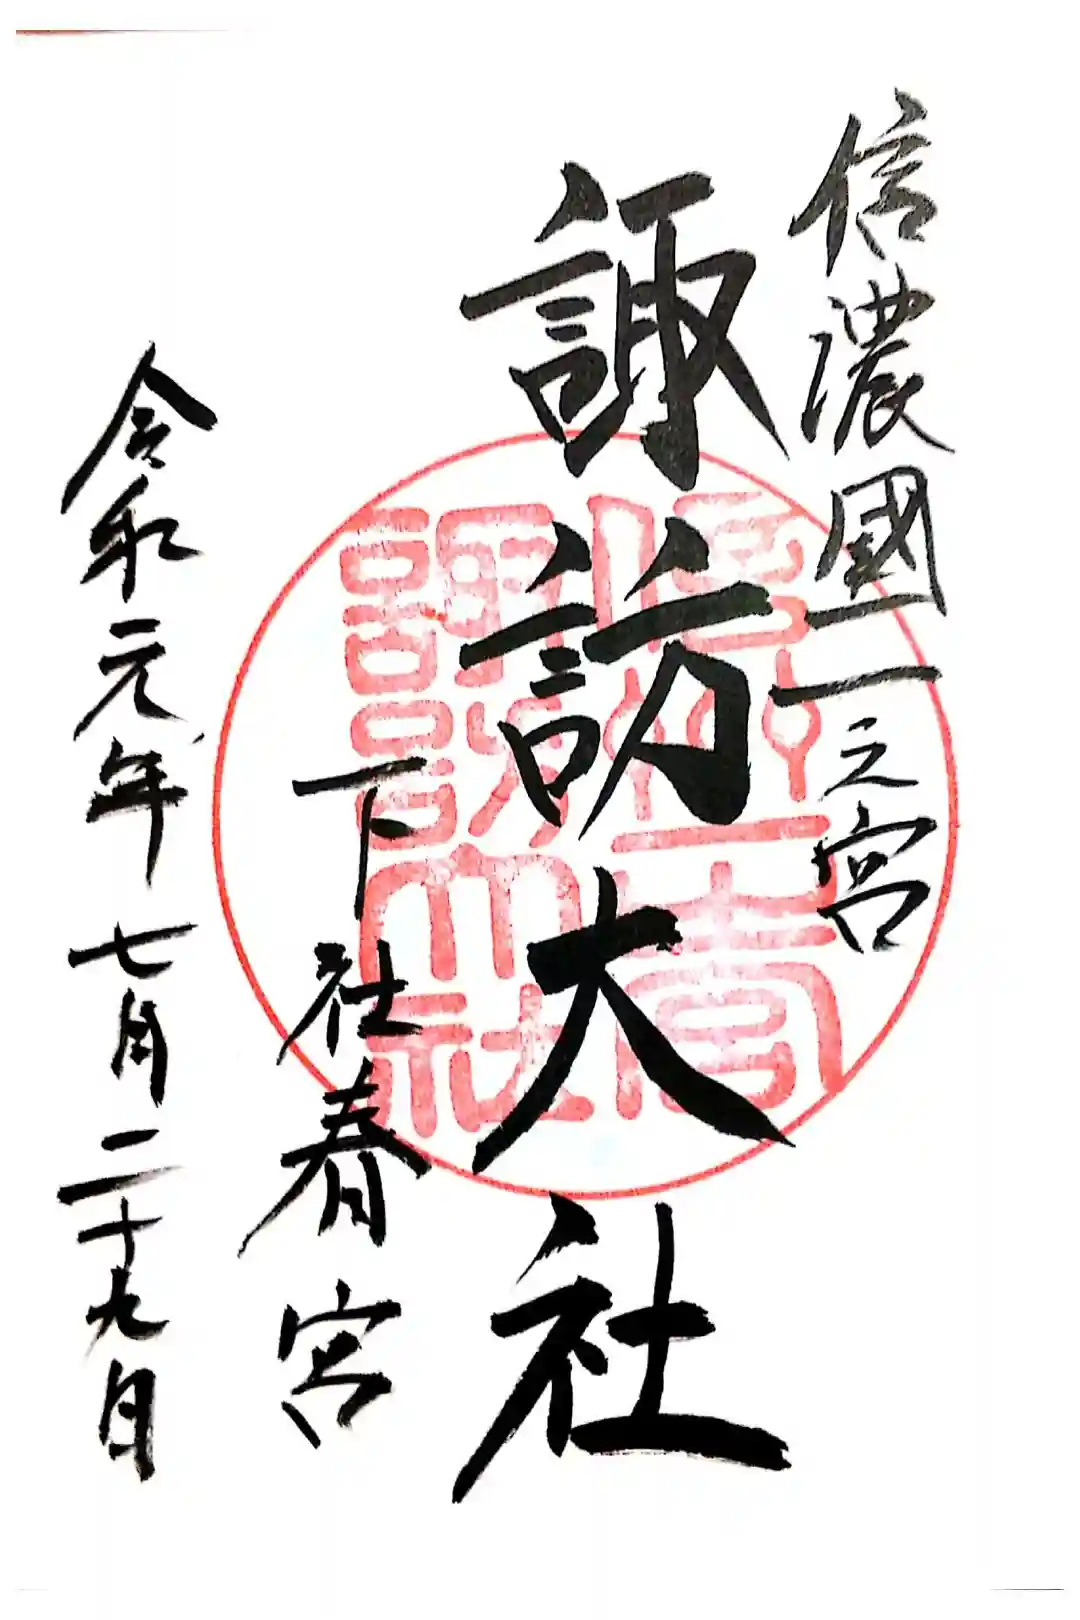 信濃國一之宮
諏訪大社
下社春宮
令和元年七月二十九日
信濃國一之宮
諏訪大社